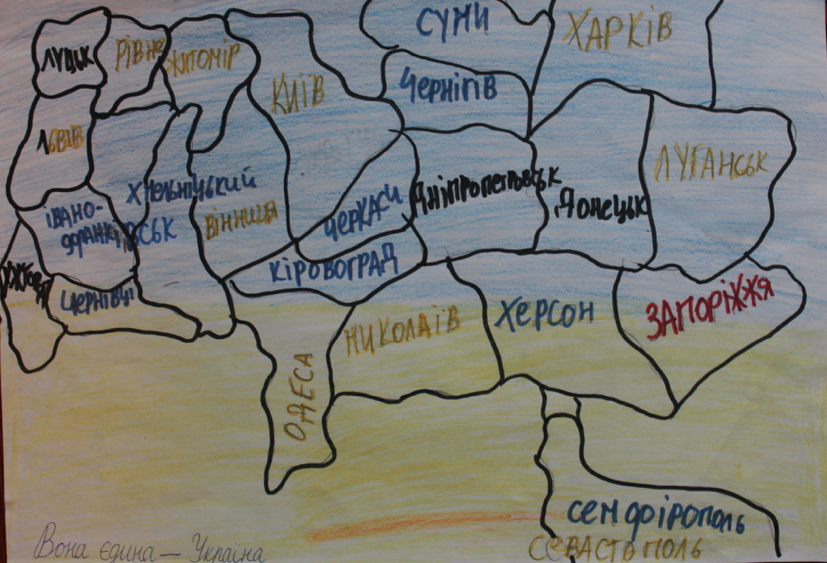 СУМИ
ХАРКІВ
ЛУЦЬК
РІВНЕ
ЖИТОМІР
КИЇВ
ЧЕРНІГІВ
ЛЬВІВ
ЛУГАНСЬК
ХМЕЛЬНІЦЬКИЙ
ДНІПРОПЕТРОВСЬК
ДОНЕЦЬК
ЧЕРКАСИ
ВІННИЦЯ
ІВАНО-
ФРАНКІВСЬК
КІРОВОГРАД
ЧЕРНІВЦІ
ЗАПОРІЖЖЯ
ХЕРСОН
МИКОЛАЇВ
ОДЕСА
СЕМФОІРОПОЛЬ
СЕВАСТОПОЛЬ
Вона єдина — Україна